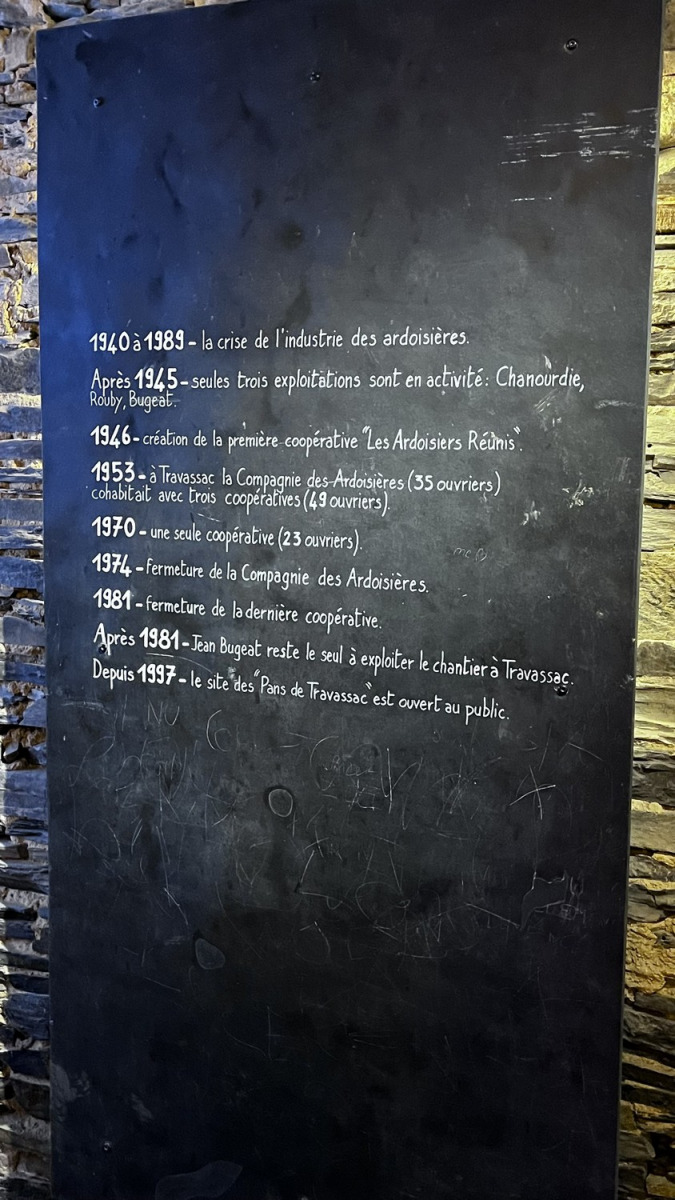 1940 à 1989 - la crise de l'industrie des ardoisières.
Après 1945 - seules trois exploitations sont en activité: Chanourdie,
Rouby, Bugeat.
1946 - création de la première coopérative "Les Ardoisiers Réunis".
1953 - à Travassac la Compagnie des Ardoisières (35 ouvriers)
cohabitait avec trois coopératives (49 ouvriers).
1970 - une seule coopérative (23 ouvriers).
1974 - fermeture de la Compagnie des Ardoisières.
1981 - fermeture de la dernière coopérative.
Après 1981 - Jean Bugeat reste le seul à exploiter le chantier à Travassac.
Depuis 1997 - le site des "Pans de Travassac" est ouvert au public.